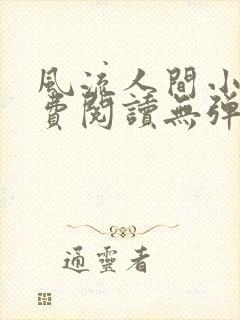 風流人間小
費閱讀無彈
通靈者